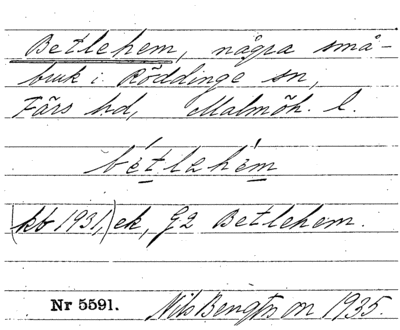 Betlehem, några små-
bruk i Röddinge sn,
Färs hd, Malmöh. l.
bétlehém
(kb 1931,) ek, G2 Betlehem.
Nr 5591. Nils Bengtsson 1935.